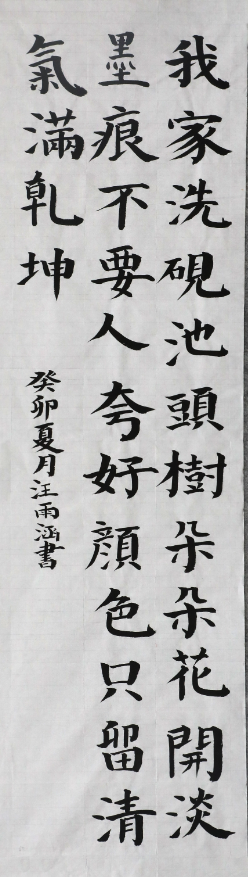 我家洗硯池頭樹朵朵花開淡
墨痕不要人夸好顔色只留清
氣滿乾坤
癸卯夏月汪雨涵書